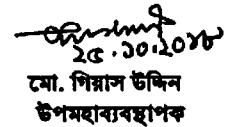 ২৫.১০.২০১৮
মো. গিয়াস উদ্দিন
উপমহাব্যবস্থাপক